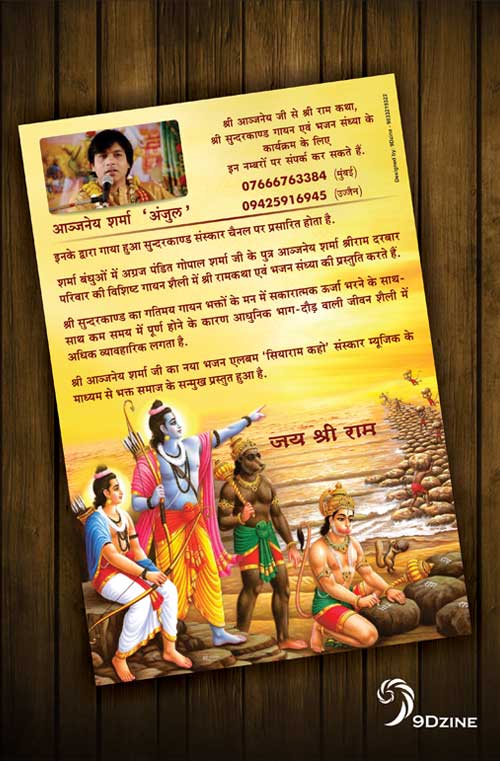 श्री आञ्जनेय जी से श्री राम कथा,
श्री सुन्दरकाण्ड गायन एवं भजन संध्या के
कार्यक्रम के लिए
इन नम्बरों पर संपर्क कर सकते हैं.
07666763384 (मुंबई)
09425916945 (उज्जैन)
Designed by: 9Dzine - 9833219322
आञ्जनेय शर्मा ‘अंजुल’
इनके द्वारा गाया हुआ सुन्दरकाण्ड संस्कार चैनल पर प्रसारित होता है.
शर्मा बंधुओं में अग्रज पंडित गोपाल शर्मा जी के पुत्र आञ्जनेय शर्मा श्रीराम दरबार
परिवार की विशिष्ट गायन शैली में श्री रामकथा एवं भजन संध्या की प्रस्तुति करते हैं.
श्री सुन्दरकाण्ड का गतिमय गायन भक्तों के मन में सकारात्मक ऊर्जा भरने के साथ-
साथ कम समय में पूर्ण होने के कारण आधुनिक भाग-दौड़ वाली जीवन शैली में
अधिक व्यावहारिक लगता है.
श्री आञ्जनेय शर्मा जी का नया भजन एलबम ‘सियाराम कहो’ संस्कार म्यूजिक के
माध्यम से भक्त समाज के सन्मुख प्रस्तुत हुआ है.
जय श्री राम
9Dzine